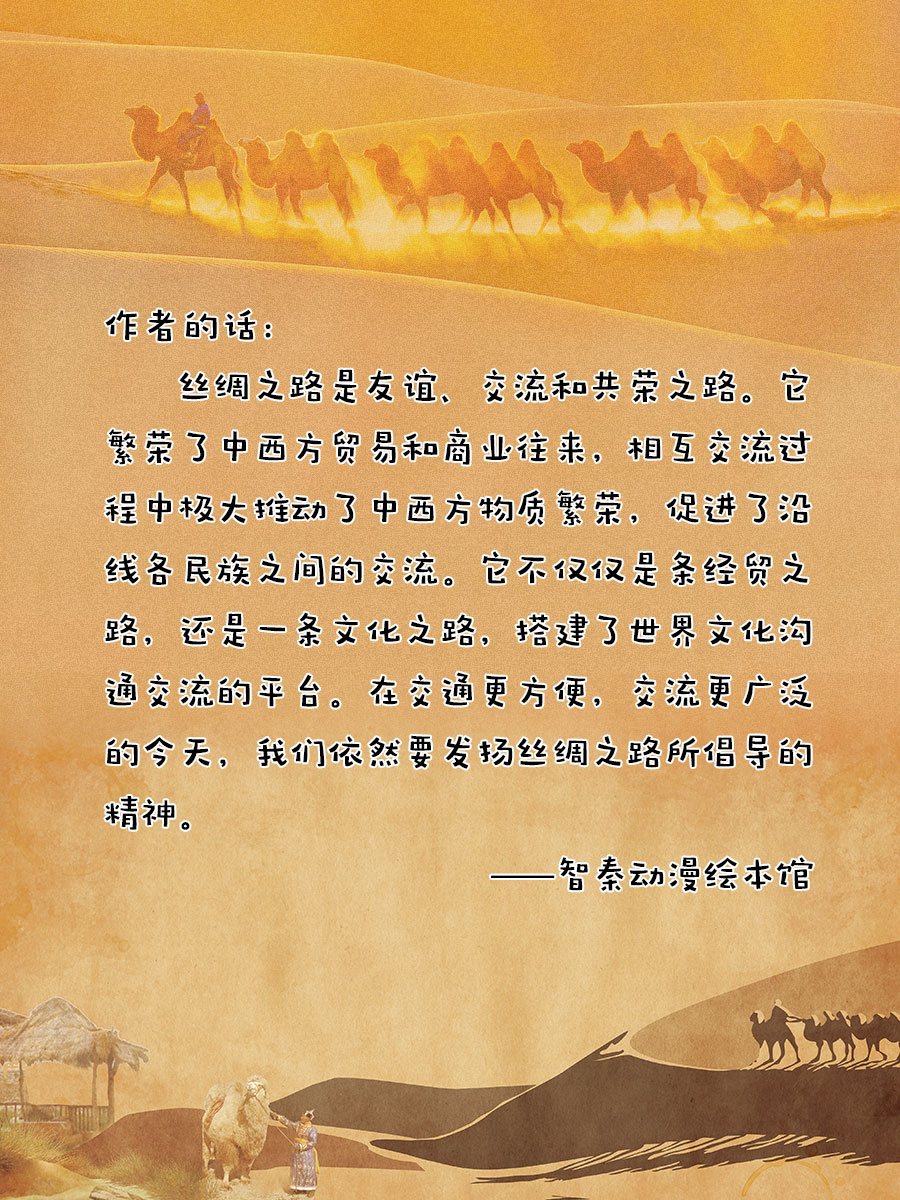 作者的话：
丝绸之路是友谊、交流和共荣之路。它
繁荣了中西方贸易和商业往来，相互交流过
程中极大推动了中西方物质繁荣，促进了沿
线各民族之间的交流。它不仅仅是条经贸之
路，还是一条文化之路，搭建了世界文化沟
通交流的平台。在交通更方便，交流更广泛
的今天，我们依然要发扬丝绸之路所倡导的
精神。
——智秦动漫绘本馆